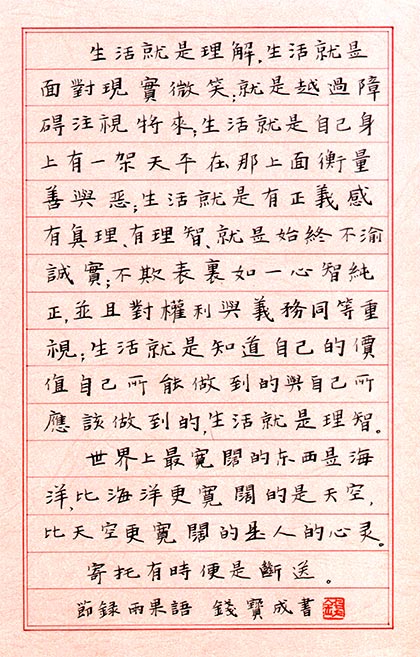 生活就是理解,生活就是
面對現實微笑;就是越過障
碍注視將來;生活就是自己身
上有一架天平在那上面衡量
善與惡;生活就是有正義感
有真理、有理智、就是始終不渝
誠實;不欺表裏如一心智純
正,並且對權利與義務同等重
視;生活就是知道自己的價
值自己所能做到的與自己所
應該做到的,生活就是理智。
世界上最寬闊的东西是海
洋,比海洋更寬闊的是天空,
比天空更寬闊的是人的心灵。
寄托有時便是斷送。
節録雨果語 錢寶成書